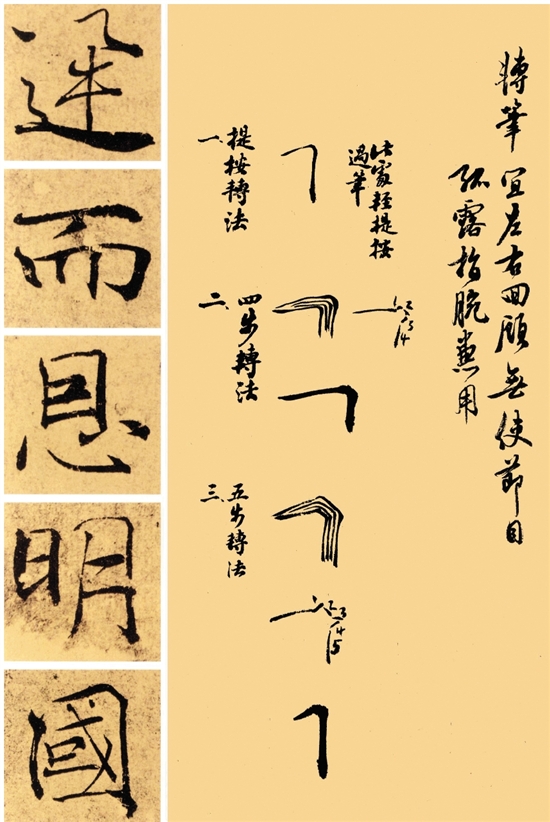 轉筆宜左右回顧無使節目
孤露指腕兼用
此處輕提按
過筆
一、提按轉法
二、四步轉法
1 2 3 4
三、五步轉法
1 2 3 4 5
而
息
明
國